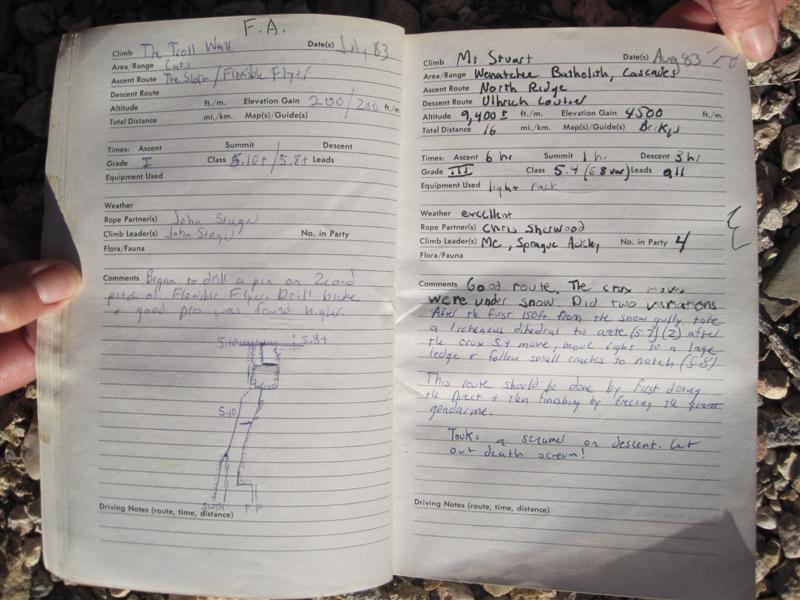 F.A.
Climb The Troll Wall Date(s) July 83
Area/Range
Ascent Route The Sloth / Flexible Flyer
Descent Route
Altitude ft./m. Elevation Gain 200/200 ft./m.
Total Distance mi./km. Map(s)/Guide(s)
Times: Ascent Summit Descent
Grade I Class 5.10+/5.8+ Leads
Equipment Used
Weather
Rope Partner(s) John
Climb Leader(s) John No. in Party
Flora/Fauna
Comments Began to drill a pin on 2cond
pitch of Flexible Flyer. Drill broke
+ good pro was found higher.
5.10 5.8+
5.10
F.F
Driving Notes (route, time, distance)
Climb Mt Stuart Date(s) Aug 83
Area/Range Wenatchee Batholith, Cascades
Ascent Route North Ridge
Descent Route Ulhrich Couloir
Altitude 9,400 ± ft./m. Elevation Gain 4500 ft./m.
Total Distance 16 mi./km. Map(s)/Guide(s) Beckys
Times: Ascent 6 hr Summit 1 hr Descent 3 hr
Grade III Class 5.4 (5.8 var) Leads all
Equipment Used light rack
Weather excellent
Rope Partner(s) Chris Sherwood
Climb Leader(s) Me, Sprague No. in Party 4
Flora/Fauna
Comments Good route. The crux moves
were under snow. Did two variations
After the first 150ft from the snow gully take
a licheneus dihedral to arete (5.7) (2) after
the crux 5.4 move, move right to a large
ledge + follow small cracks to notch (5.8)
This route should be done by first doing
the direct + then finishing by freeing the
gendarme.
Took a screamer on descent. Let
out death scream!
Driving Notes (route, time, distance)